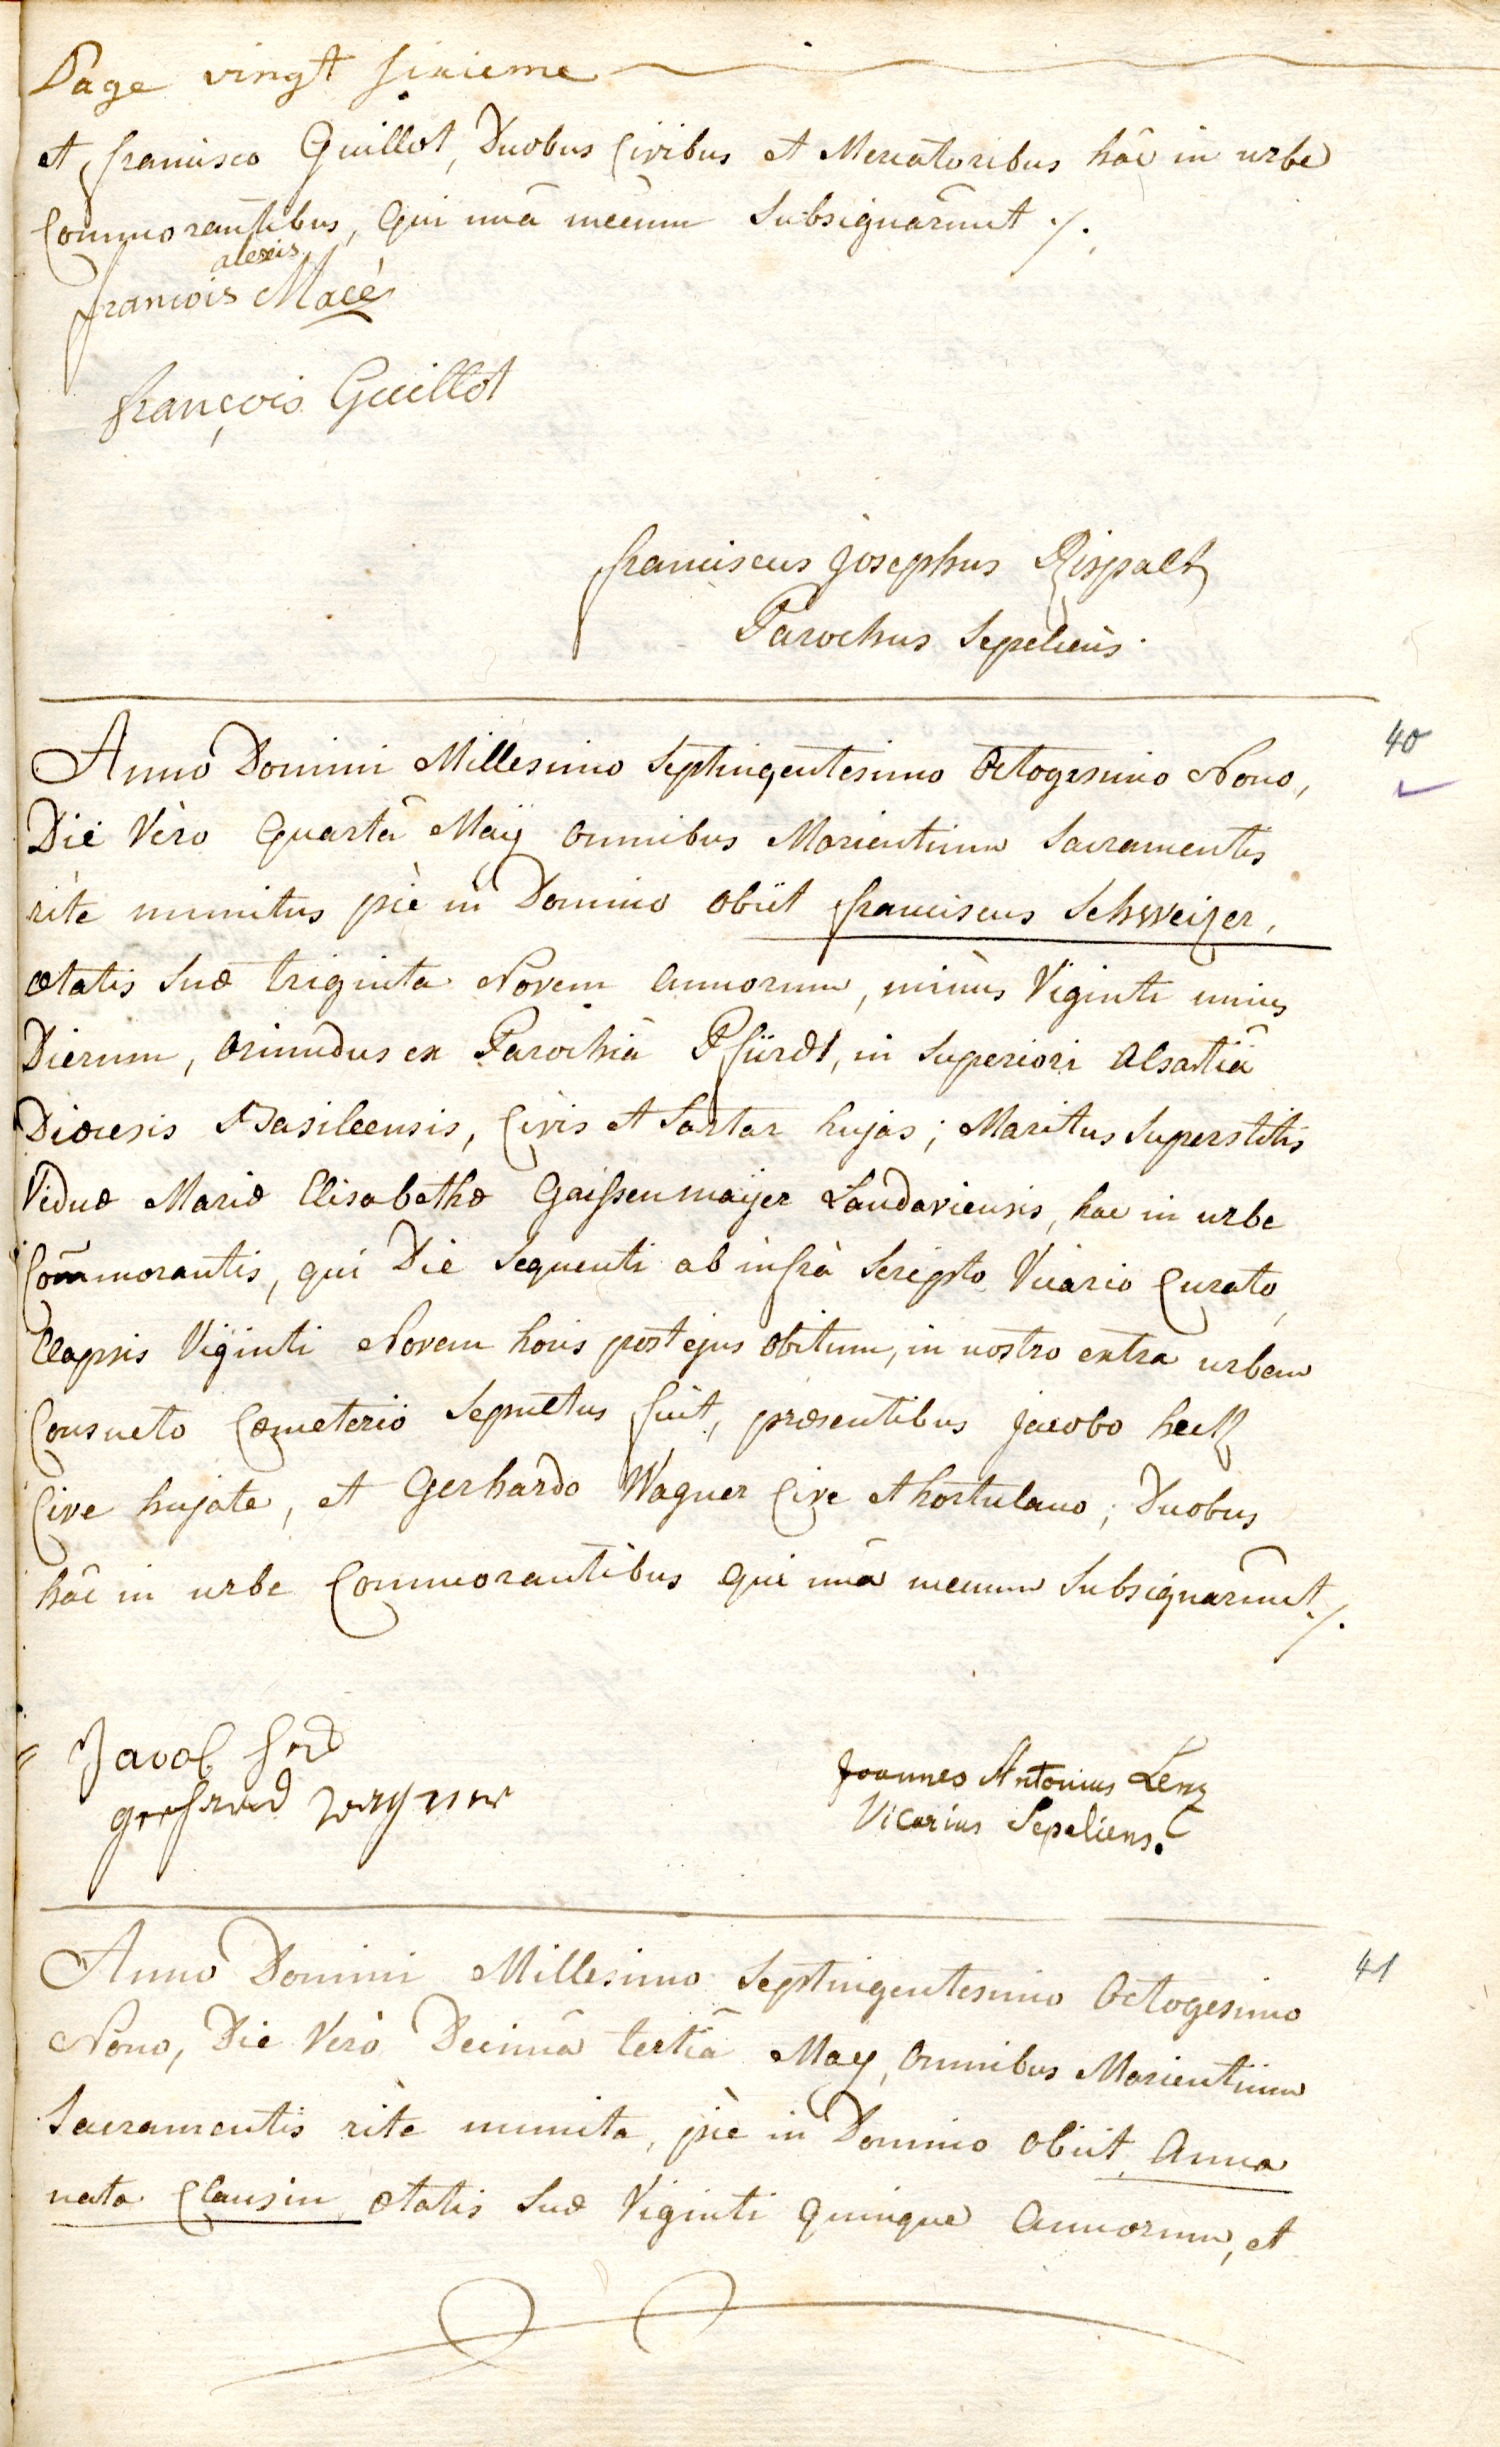 Page vingt sixieme
et francisco Guillot, Duobus Civibus et Mercatoribus hâc in urbe
Commorantibus, qui unâ mecum Subsignârunt ./.
alexis
francois Macé
françois Guillot
franciscus Josephus Rispalt
Parochus Sepeliens.
40
Anno Domini Millesimo Septingentesimo Octogesimo Nono,
Die Vèro Quartâ Maÿ omnibus Morientium Sacramentis
rite munitus piè in Domino obiit franciscus Schweizer,
ætatis Suæ triginta Novem annorum, minùs Viginti unius
Dierum, oriundus ex Parochiâ Pfürdt, in Superiori Alsatiâ
Diœcesis Basileensis, Civis et Sartor hujas; Maritus Superstitis
Viduæ Mariæ Elisabethæ Gaissenmaijer Landaviensis, hac in urbe
Com̃morantis, qui Die Sequenti ab infrà Scripto Vicario Curato,
Elapsis Viginti Novem horis post ejus obitum, in nostro extra urbem
Consueto Cœmeterio Sepultus fuit, præsentibus Jacobo heck
Cive hujate, et Gerhardo Wagner Cive et hortulano; Duobus
hâc in urbe Commorantibus qui unâ mecum Subsignârunt ./.
Jacob
Joannes Antonius Lenz
Vicarius Sepeliens.
41
Anno Domini Millesimo Septingentesimo Octogesimo
Nono, Die Vèrò Decimâ tertiâ May, omnibus Morientium
Sacramentis rite munita, piè in Domino obiit Anna
nata Clausin ætatis Suæ Viginti quinque Annorum, et